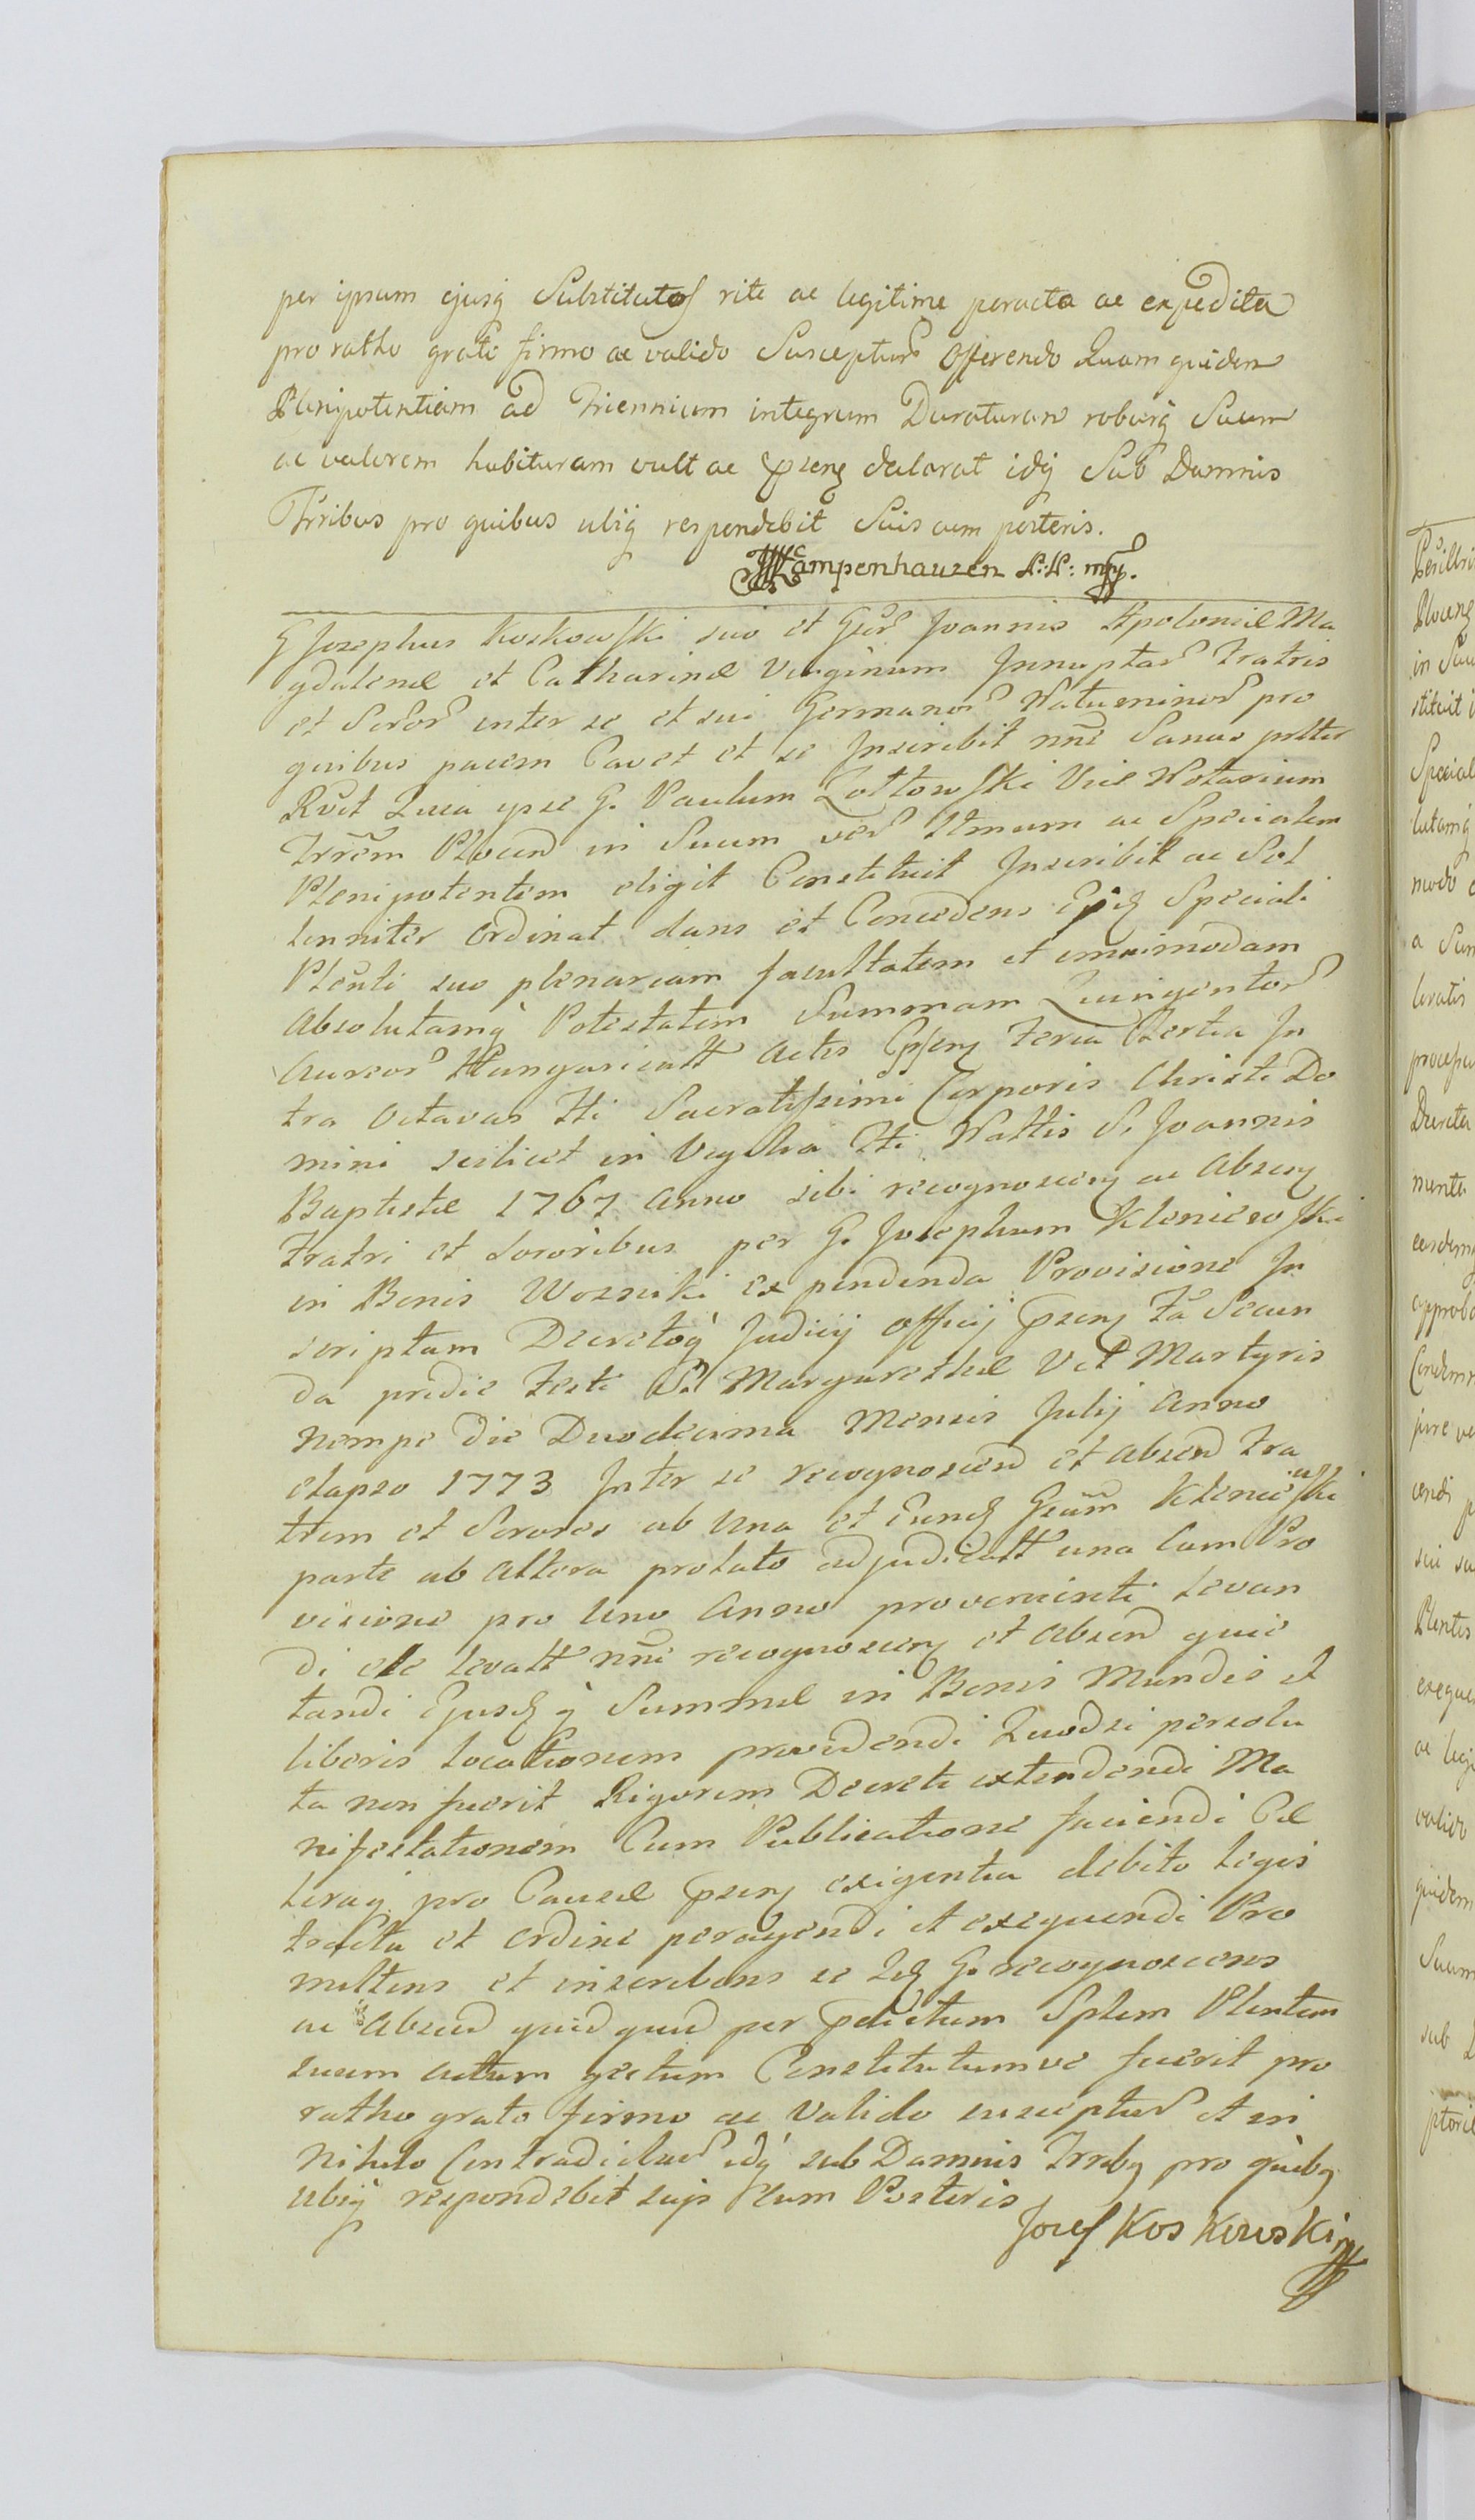 per ipsum ejusq Substitutos rite ac legitime peracta ac expedita
pro ratho grato firmo ac valido Suscepturū offerendo Quam quidem
Plenipotentiam ad Triennium integrum Duraturam roburq Suum
ac valorem habituram vult ac pseng dalarat idq Sub Damnis
Trribus pro quibus ubiq respondebit Suis cum posteris.
Kampenhauzen P:P: mpp.
G Josephus Koskowski suo et Gsor Joannis Apoloniæ Ma
gdalenæ et Catharinæ Virginum Innuptar Fratris
et Soror inter se et sui Germanor Natu minor pro
quibus pacem Cavet et se Inscribit nne Sanus pstter
Rvit Quia ipse G. Paulum Zoltowski Vice Notarium
Trrem Plocen in Suum ver ltmum ac Specialem
Plenipotentem eligit Constituit Inscribit ac Sol
lenniter Ordinat dans et Concedens Speciali
Plenti suo plenariam facultatem et omnimodam
Absolutamq Potestatem Summam Quingentor
Aureor Hungaricall Actis pseng Feria Tertia In
tra Octavas tti Sacratissimi Corporis Christi Do
mini scilicet in Vigilia tti Nattis S. Joannis
Baptistæ 1767 Anno sibi recognoscen ac Absen
Fratri et Sororibus per G. Josephum Kleniewski
in Bonis Wozniki ex pendenda Provisione In
scriptam Decretoq Judicij Officij psen Fa Secun
da pridie Festi S. Margarethæ V et Martyris
nempe die Duodecima Mensis Julij Anno
elapso 1773 Inter se recognoscen et Absen Fra
trem et Sorores ab Una et Eund Gsum Kleniewski
parte ab Altera prolato adjudicatt una Cum Pro
visione pro Uno Anno proveniente Levan
di ele levatt nne recognoscen et Absen quie
tandi Ejusdq Summæ in Bonis Mundis et
liberis locationem providendi Quodsi persolu
ta non fuerit Rigorem Decreti extendendi Ma
nifestationem Cum Publicatione faciendi Cæ
teraq pro Causæ psen exigentia debito legis
tractu et ordine peragendi et exequendi Pro
mittens et inscribens se G. recognoscens
ac Absen quid quid per pdictum Splem Plentem
suum actum gestum Constitutumve fuerit pro
ratho grato firmo ac Valido susceptur et in
nihilo Contradictur idq sub Damnis Trrbq pro quibq
ubiq respondebit suis Cum Posteris
Josef Koskowski